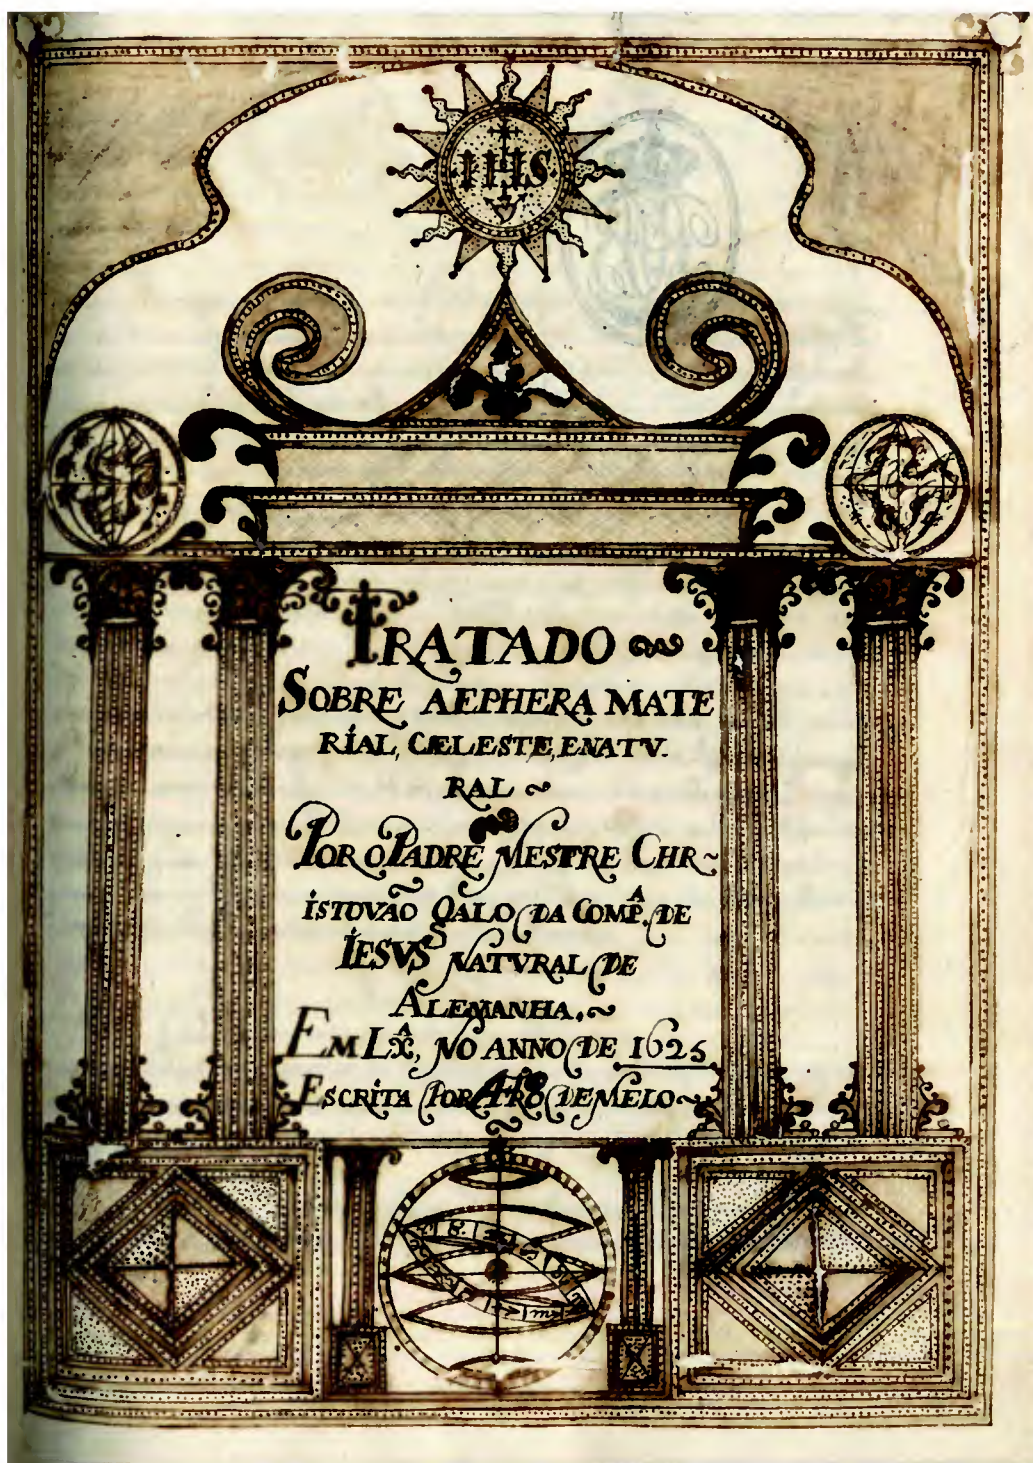 IHS
TRATADO
SOBRE AEPHERA MATE
RÍAL, CÆLESTE, ENATV.
RAL
POR O PADRE MESTRE CHR~
ISTOVÃO GALO DA COMP̂. DE
IESVS NATVRAL DE
ALEMANHA.
EM LX̂, NO ANNO DE 1625
ESCRITA POR DE MELO